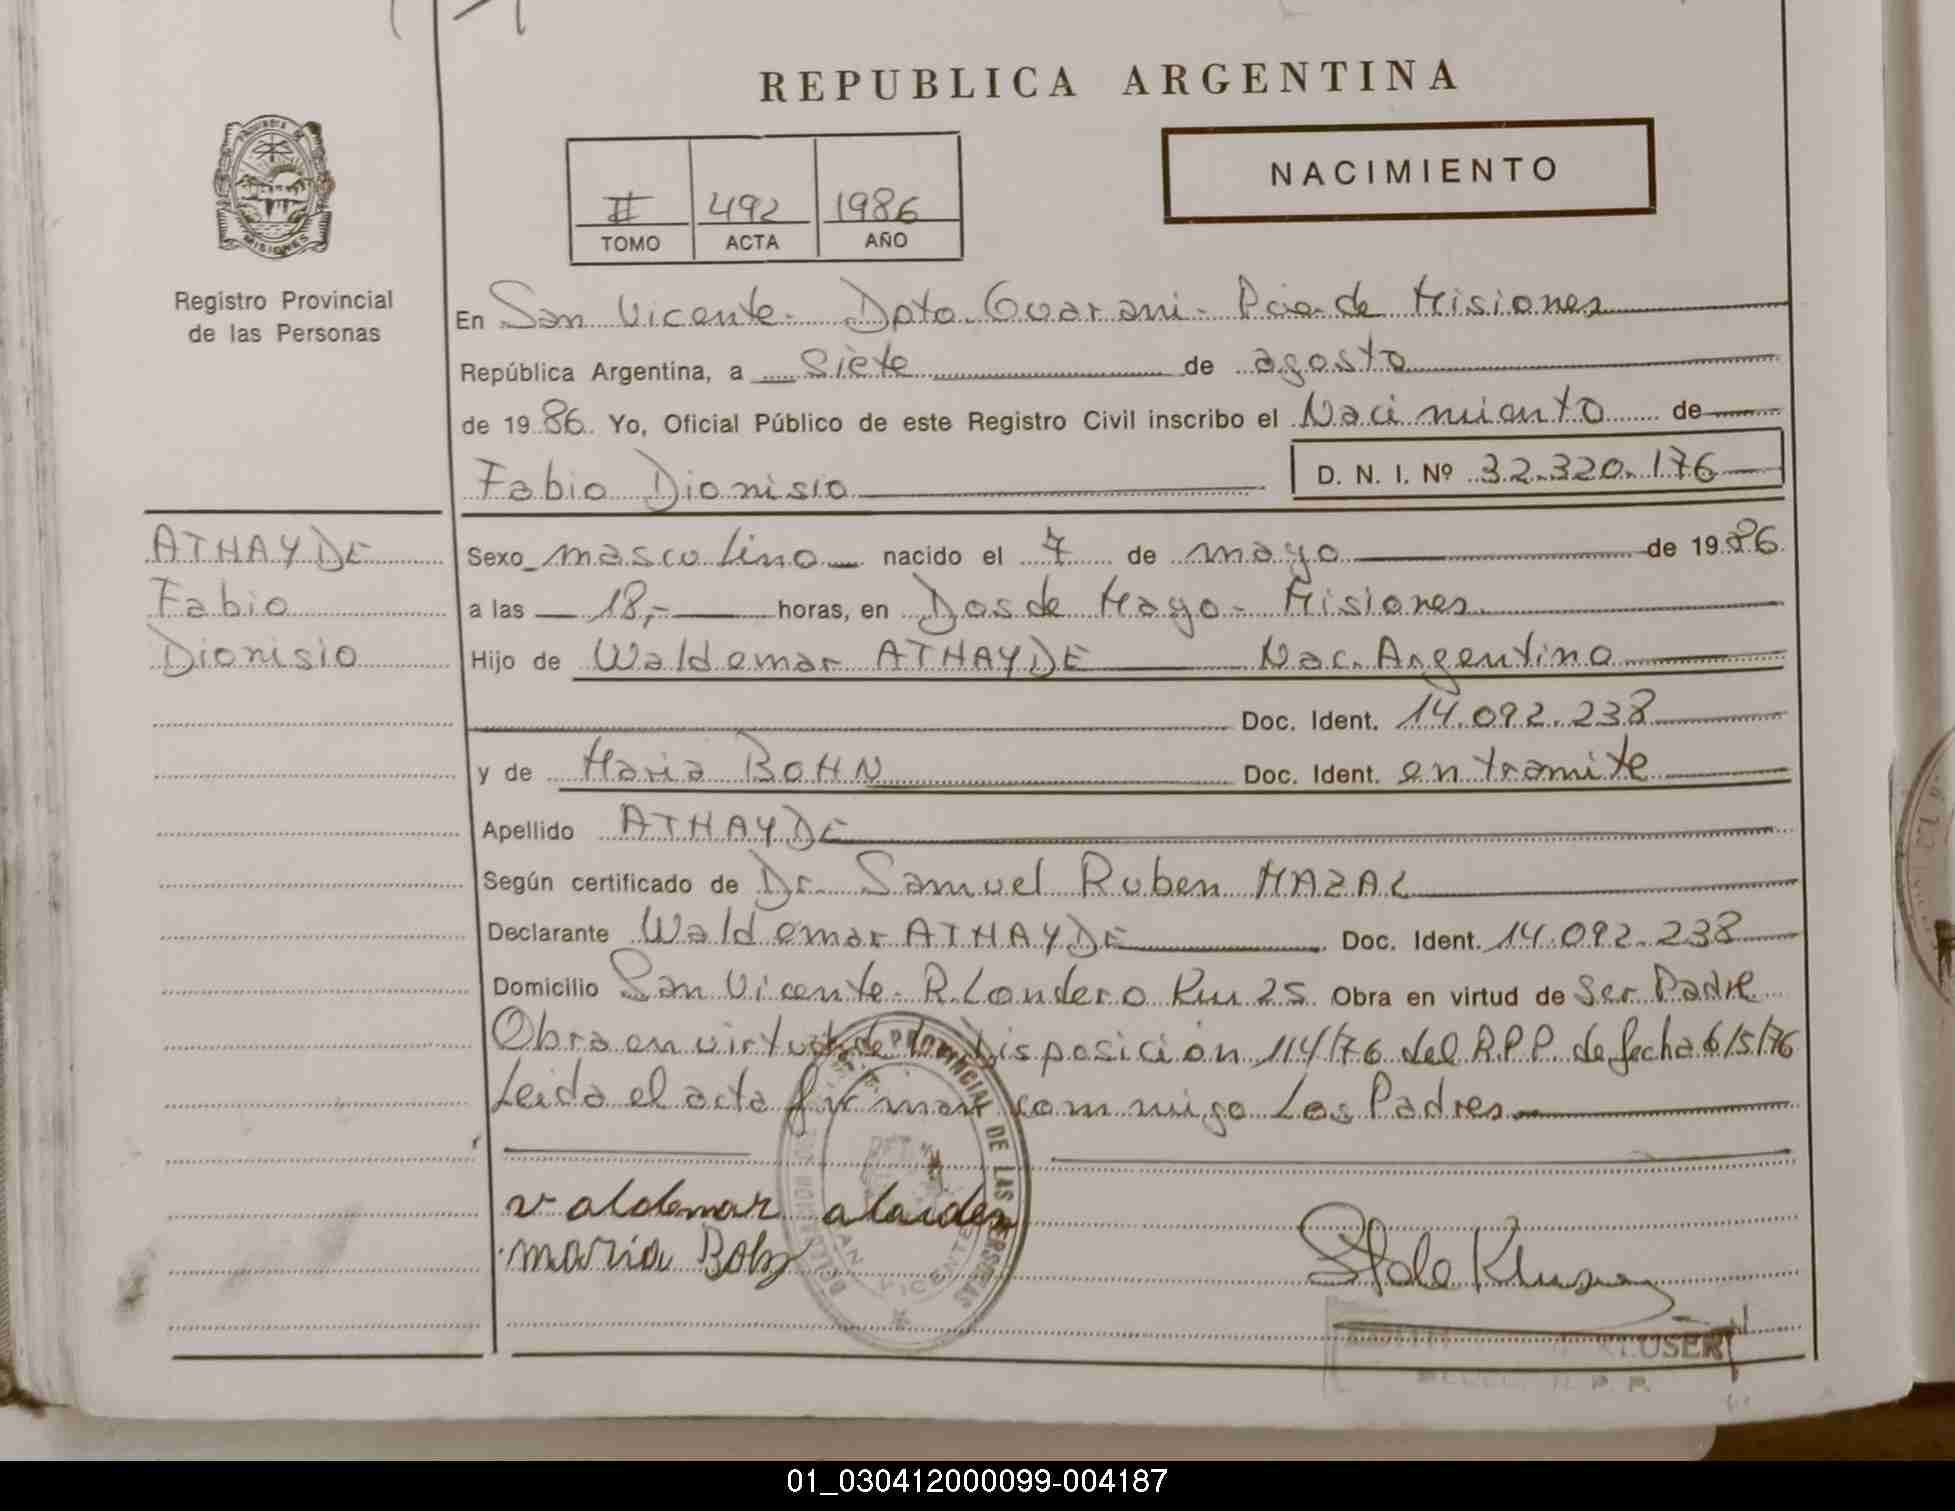 REPUBLICA ARGENTINA
PROVINCIA DE
MISIONES
Registro Provincial
de las Personas
II 492 1986
TOMO ACTA AÑO
NACIMIENTO
En San Vicente - Dpto. Guarani - Pcia de Misiones
República Argentina, a siete de agosto
de 1986. Yo, Oficial Público de este Registro Civil inscribo el Nacimiento de
Fabio Dionisio D. N. I. Nº 32.320.176
ATHAYDE
Fabio
Dionisio
Sexo masculino nacido el 7 de mayo de 1986
a las 18,- horas, en Dos de Mayo - Misiones
Hijo de Waldemar ATHAYDE Nac. Argentino
Doc. Ident. 14.092.238
y de Maria BOHN Doc. Ident. en tramite
Apellido ATHAYDE
Según certificado de Dr. Samuel Ruben MAZAL
Declarante Waldemar ATHAYDE Doc. Ident. 14.092.238
Domicilio San Vicente - R. Londero Km 25 Obra en virtud de Ser Padre
Obra en virtud de la Disposición 114/76 del R.P.P. de fecha 6/5/76
Leida el acta firman conmigo Los Padres
PROVINCIAL DE LAS PERSONAS
DELEGACION
SAN VICENTE
valdemar ataides
maria Bohn
KLUSER
R. P. P.
01_030412000099-004187